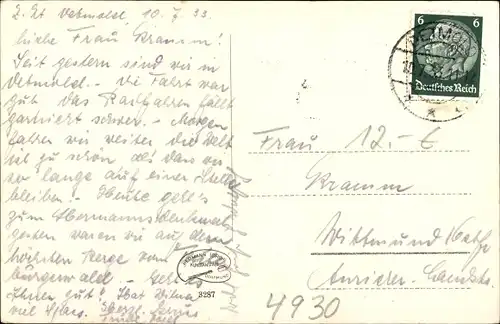 z. Zt Detmold, 10.7.33.
Liebe Frau Kramm!
Seit gestern sind wir in
Detmold. - Die Fahrt war
gut das Radfahren fällt
garnicht schwer. - Morgen
fahren wir weiter die Welt
ist zu schön als dass wir
so lange auf einer Stelle
bleiben. - Heute geht's
zum Hermannsdenkmal
gestern waren wir auf dem
höchsten Berge vom
Ihnen gut? Hat
viel Spass. Herzl. Grüsse
6
Deutsches Reich
DETMOLD
Frau 12.- €
Kramm
Wittmund
Auricher Landstr.
3287
4930